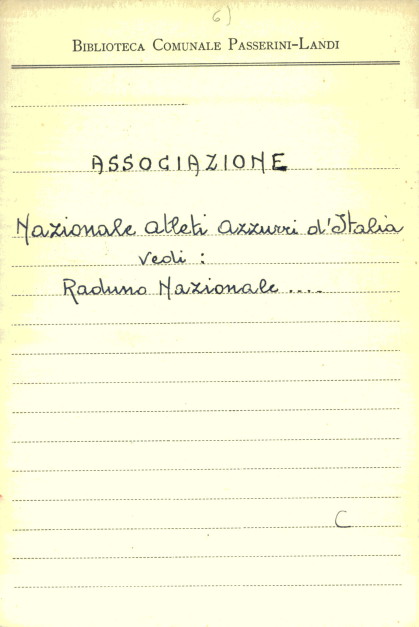 6)
BIBLIOTECA COMUNALE PASSERINI-LANDI
ASSOCIAZIONE
Nazionale Atleti Azzurri d'Italia
vedi :
Raduno Nazionale ....
C